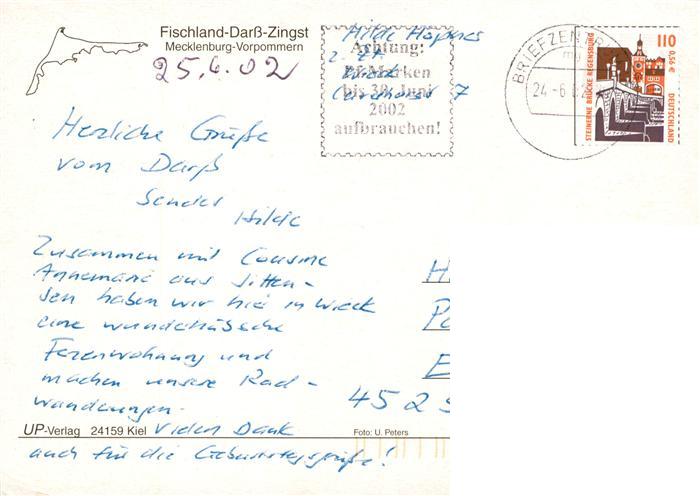 Fischland-Darß-Zingst
Mecklenburg-Vorpommern
25.6.02
Hilde
z. Zt.
7
Achtung:
Pf-Marken
bis 30. Juni
2002
aufbrauchen!
BRIEFZEN
24-6.02
110
0,56 €
STEINERNE BRÜCKE REGENSBURG
DEUTSCHLAND
Herzliche Grüße
vom Darß
Sendet
Hilde
Zusammen mit Cousine
Annemarie aus Sitten-
sen haben wir hier in Wieck
eine wunderhübsche
Ferienwohnung und
machen unsere Rad-
wanderungen.
Vielen Dank
auch für die Geburtstagsgrüße!
H
Po
E
452
UP-Verlag 24159 Kiel
Foto: U. Peters